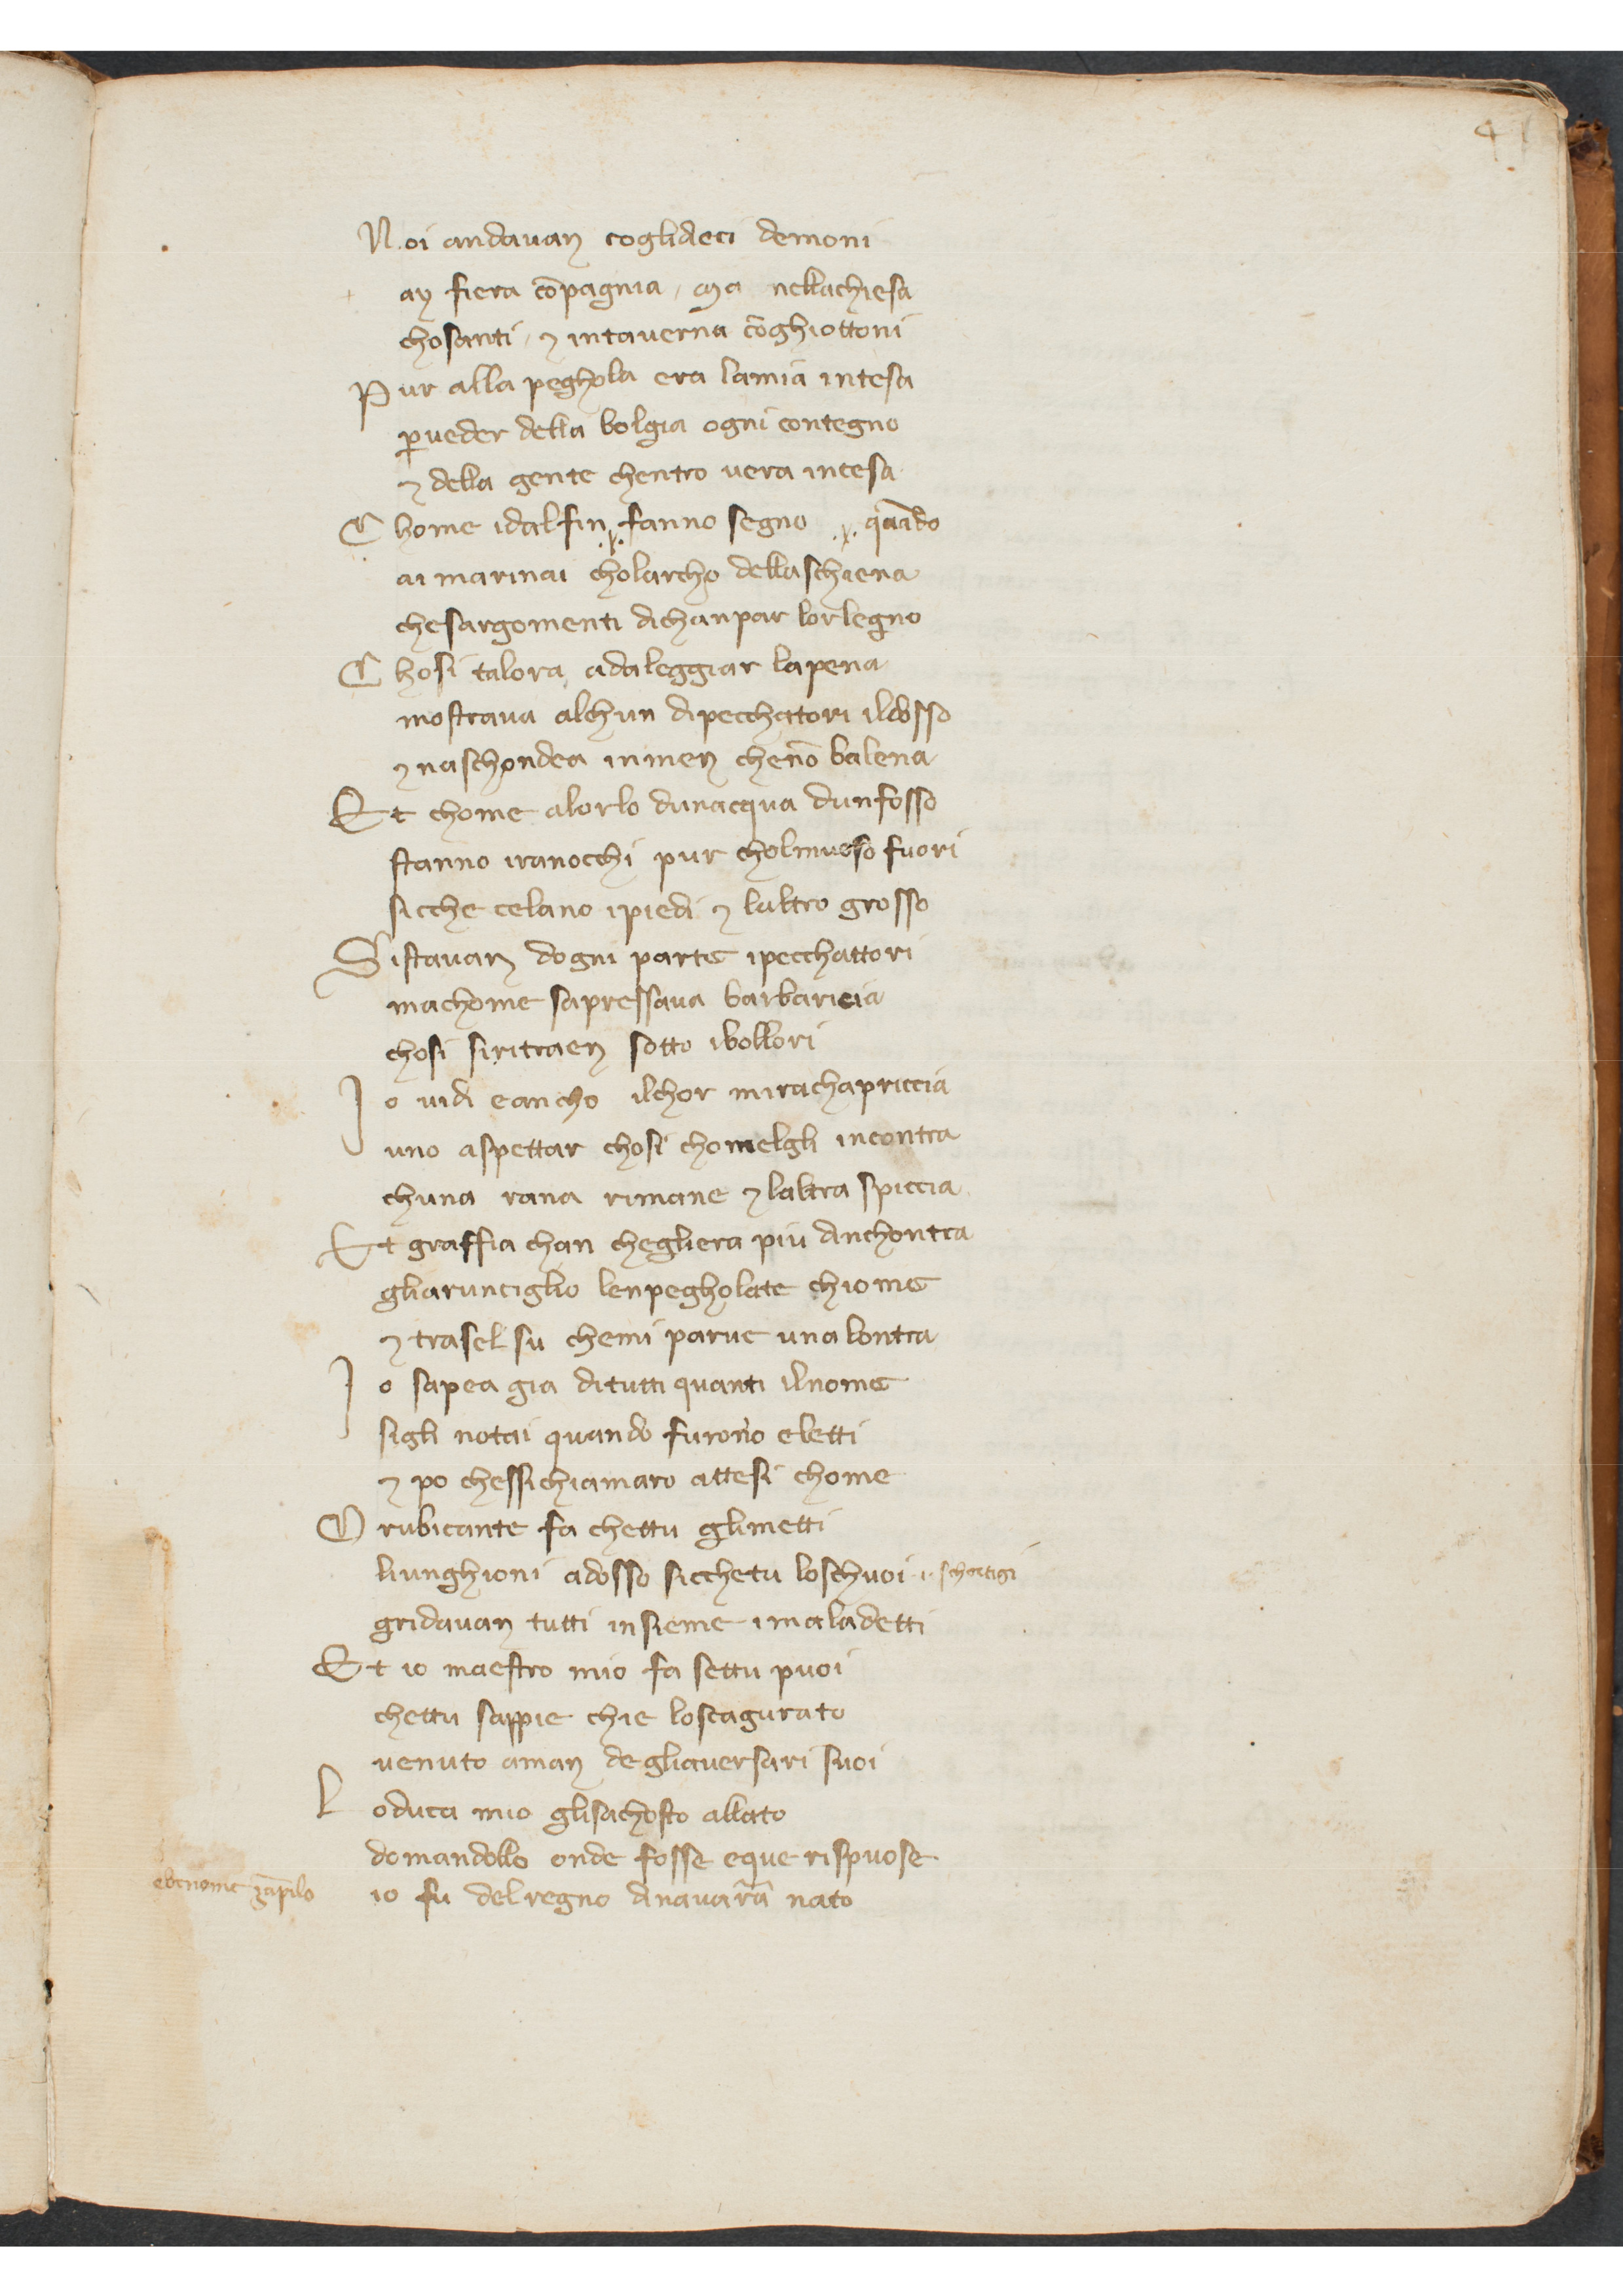 41
Noi andauan coglideci demoni
ay fiera cōpagnia / ma nellachiesa
chosanti / ⁊ intauerna cōghiottoni
Pur alla peghola era lamia intesa
ꝑueder della bolgia ogni contegno
⁊ della gente chentro uera incesa
Chome idalfin .x. fanno segno .x. quādo
ai marinai cholarcho dellaschiena
chesargomenti dichanpar lorlegno
Chosi talora adaleggiar lapena
mostraua alchun dipecchatori ildosso
⁊ naschondea inmen chenō balena
Et chome alorlo dunacqua dunfosso
stanno iranocchi pur cholmuso fuori
sicche celano ipiedi ⁊ laltro grosso
Sistauan dogni parte ipecchattori
machome sapressaua barbaricia
chosi siritraen sotto ibollori
Io uidi eancho ilchor mirachapriccia
uno aspettar chosi chomelgli incontra
chuna rana rimane ⁊ laltra spiccia
Et graffia chan chegliera piu dinchontra
gliarunciglio lenpegholate chiome
⁊ trasel su chemi parue una lontra
Io sapea gia ditutti quanti ilnome
sigli notai quando furono eletti
⁊ po chessichiamaro attesi chome
O rubicante fa chettu glimetti
liunghioni adosso sicchetu loschuoi .i. schortigi
gridauan tutti insieme imaladetti
Et io maestro mio fa settu puoi
chettu sappie chie loscagurato
uenuto aman degliauersari suoi
Loduca mio glisachosto allato
domandollo onde fosse eque rispuose
io fu delregno dinauarra nato